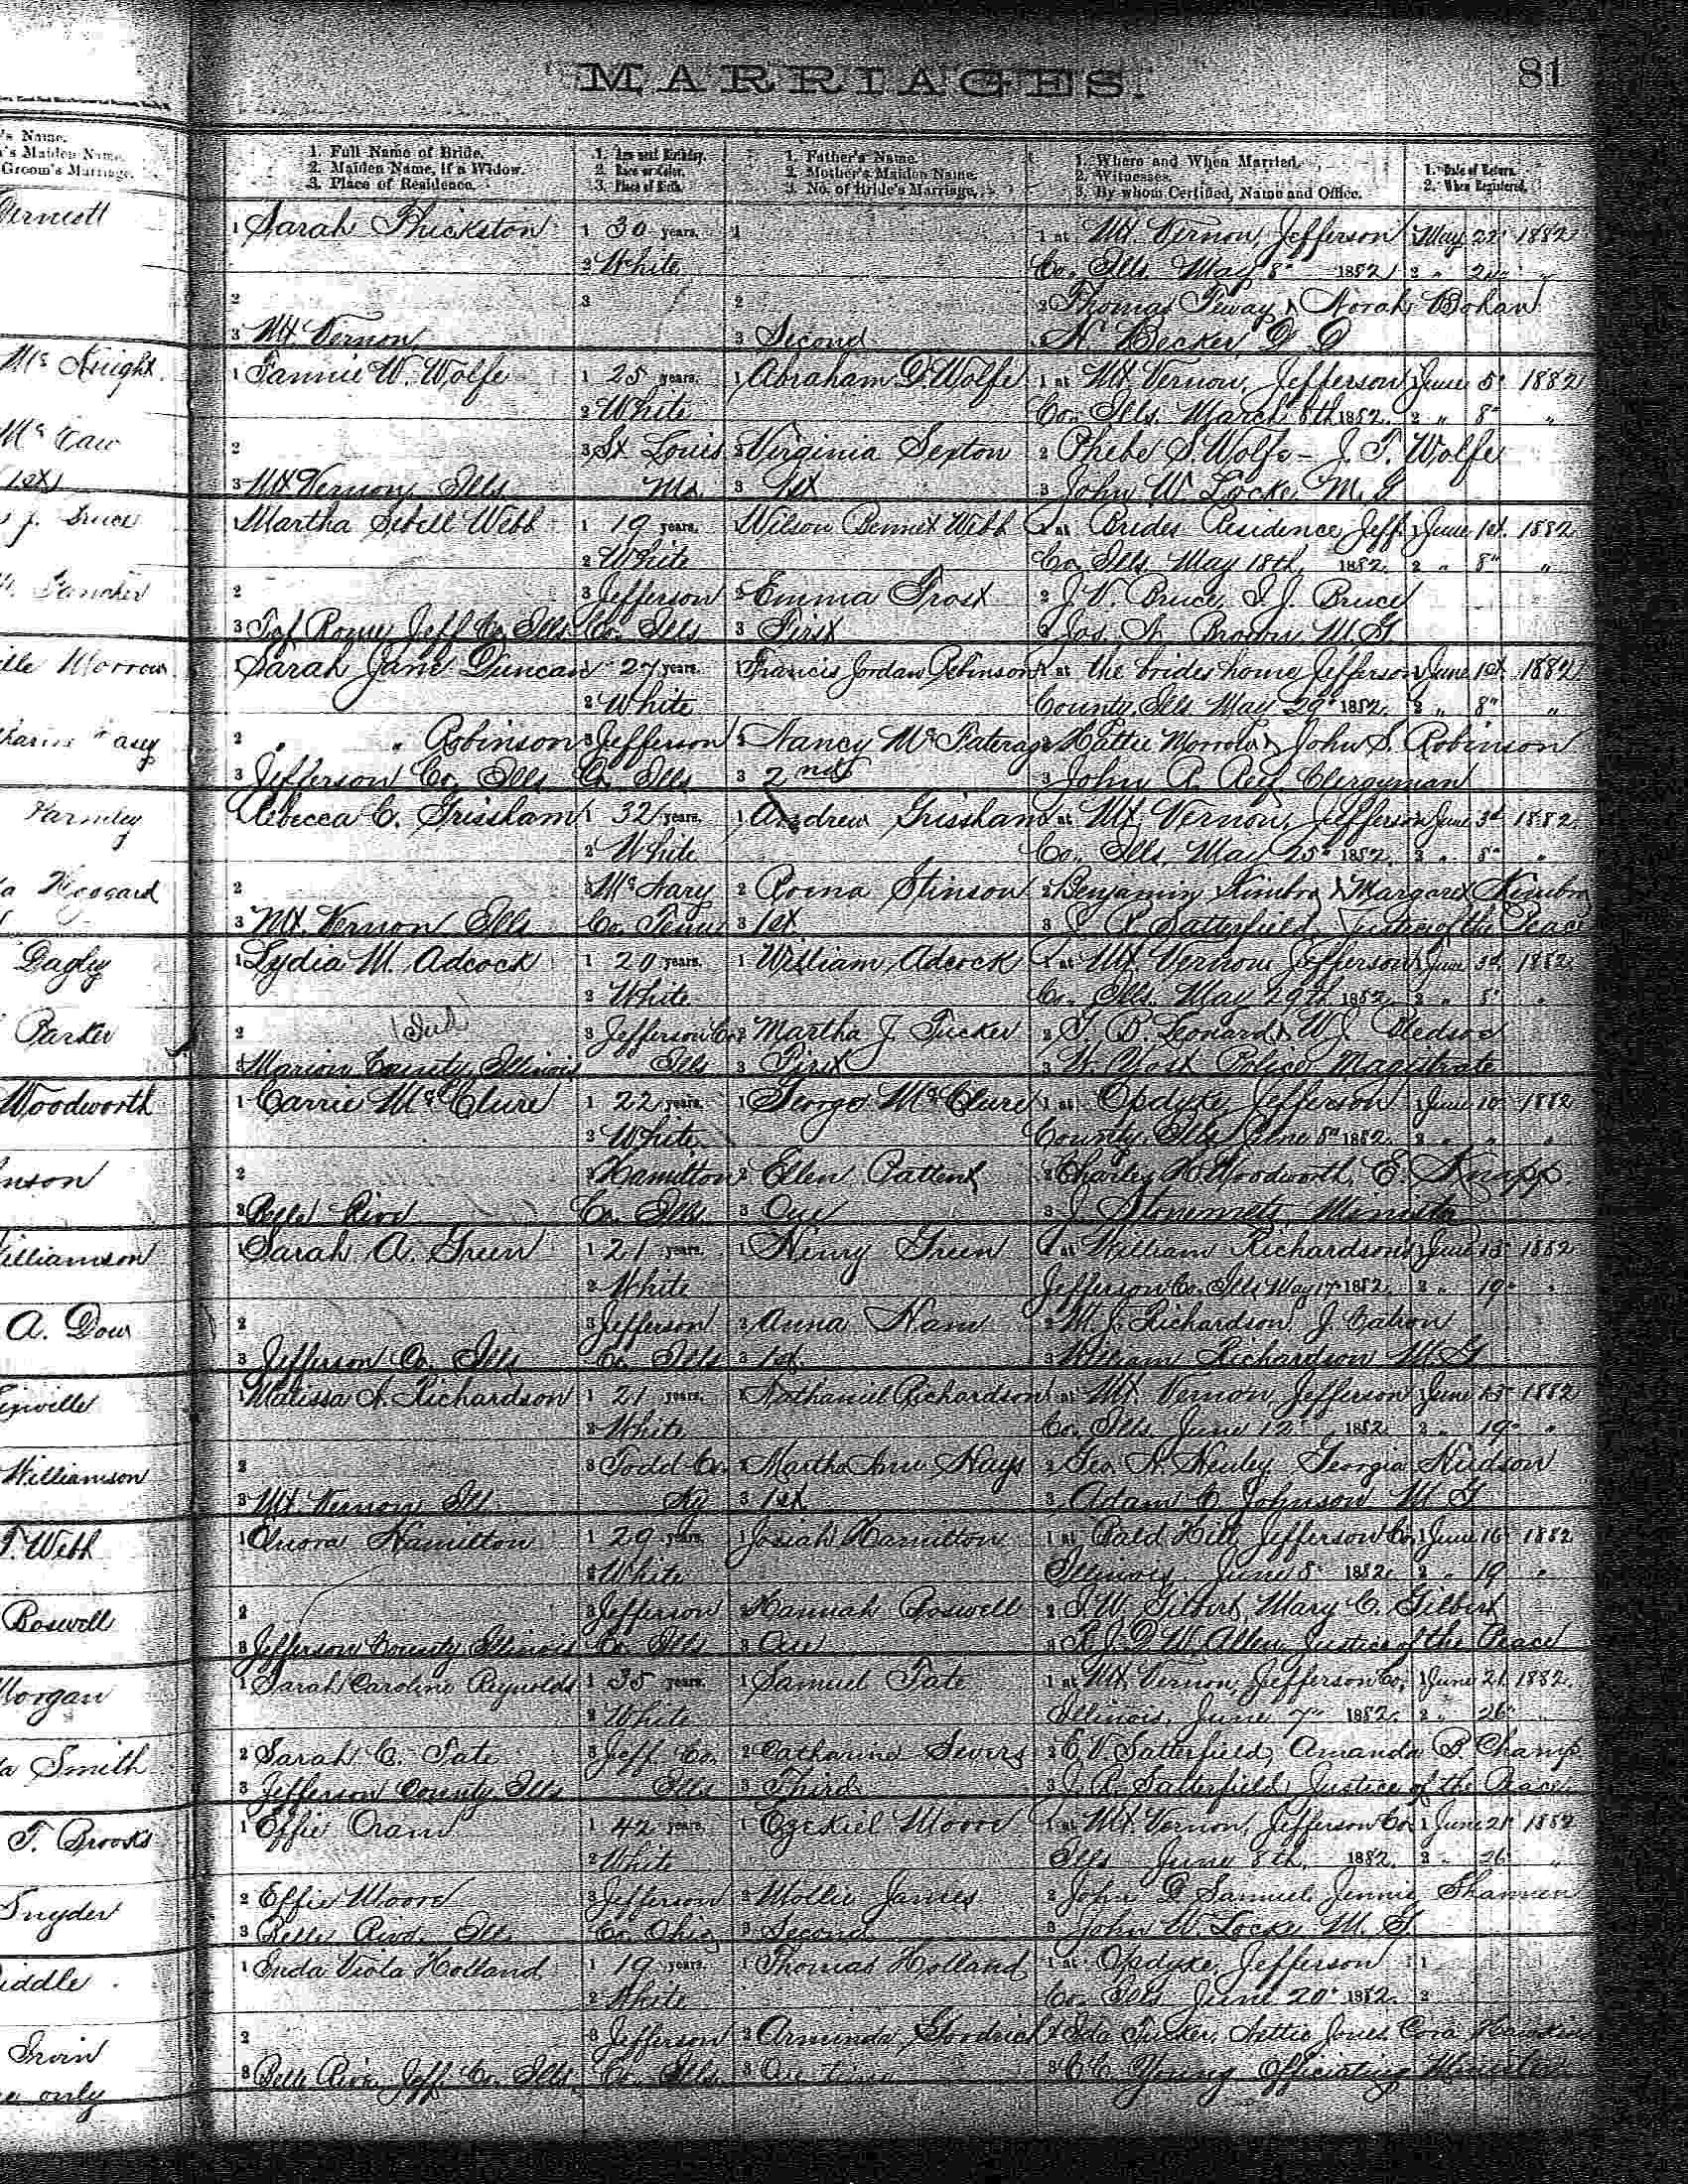 MARRIAGES.
81
's Name.
's Maiden Name.
Groom's Marriage.
1. Full Name of Bride.
2. Maiden Name, if a Widow.
3. Place of Residence.
1. Age next Birthday.
2. Race or Color.
3. Place of Birth.
1. Father's Name.
2. Mother's Maiden Name.
3. No. of Bride's Marriage.
1. Where and When Married.
2. Witnesses.
3. By whom Certified, Name and Office.
1. Date of Return.
2. When Registered.
1 Sarah Thickston 1 30 years. 1 1 at Mt. Vernon, Jefferson 1 May 22 1882
2 White Co. Ills. May 8" 1882 2 " "
2 3 2 2 Thomas & Norah Bohan
3 Mt. Vernon 3 Second N. Becker D. D
McKnight
1 Fannie W. Wolfe 1 25 years. 1 Abraham D Wolfe 1 at Mt Vernon, Jefferson 1 June 5" 1882
2 White Co. Ills. March 8th 1882 2 " 8" "
2 3 St Louis 2 Virginia Sexton 2 Phebe S. Wolfe - J. T. Wolfe
3 Mt Vernon, Ills Mo. 3 1st 3 John W Locke, M. G
1 Martha Sebell Webb 1 19 years. 1 Wilson Bennet Webb 1 at Brides Residence Jeff 1 June 1st 1882
2 White Co. Ills. May 18th, 1882 2 " 8" "
2 3 Jefferson 2 Emma Frost 2 J. V. Bruce, I. J. Bruce
3 Jeff Co. Ills Co. Ills 3 First 3 Jas. A. Brown M. G
Morrow
1 Sarah Jane Duncan 1 27 years. 1 Francis Jordan Robinson 1 at the brides home Jefferson 1 June 1st 1882
2 White County Ills May 29" 1882 2 " 8" "
2 " " Robinson 3 Jefferson 2 Nancy 2 Hattie Morrow & John S. Robinson
3 Jefferson Co. Ills Co. Ills 3 2nd 3 John A. Reef Clergyman
Parmley
1 Rebecca C. Grissham 1 32 years. 1 Andrew Grissham 1 at Mt. Vernon, Jefferson 1 June 3d 1882
2 White Co. Ills. May 25" 1882 2 " 8" "
Hoggard
2 3 McNary 2 Roena Stinson 2 Benjamin Kimbro & Margaret Kimbro
3 Mt. Vernon Ills Co. Tenn 3 1st 3 Satterfield, Justice of the Peace
Dagley
1 Lydia M. Adcock 1 20 years. 1 William Adcock 1 at Mt. Vernon Jefferson 1 June 3d 1882
2 White Co. Ills. May 29th 1882 2 " 8" "
Parker
2 3 Jefferson Co 2 Martha J Tucker 2 T. B. Leonard & W. J. Bledsoe
3 Marion County, Illinois Ills 3 First 3 W. Yost Police Magistrate
Woodworth
1 Carrie McClure 1 22 years. 1 George McClure 1 at Opdyke, Jefferson 1 June 10" 1882
2 White County Ills June 8" 1882 2 " " "
2 3 Hamilton 2 Ellen 2 Charles H. Woodworth, E. Knapp
3 Belle Rive Co. Ills. 3 One 3 J. Minister
Williamson
1 Sarah A. Green 1 21 years. 1 Henry Green 1 at William Richardson's 1 June 13" 1882
2 White Jefferson Co. Ills May 17" 1882 2 " 19" "
A. Dow
2 3 Jefferson 2 Anna Ham 2 M. J. Richardson, J. Catron
3 Jefferson Co. Ills Co. Ills 3 1st 3 William Richardson M. G
1 Malissa A. Richardson 1 21 years. 1 Nathaniel Richardson 1 at Mt. Vernon, Jefferson 1 June 13" 1882
2 White Co. Ills. June 12" 1882 2 " 19" "
Williamson
2 3 Todd Co. 2 Martha Ann Hays 2 Geo. H. Henley Georgia Hudson
3 Mt. Vernon Ill Ky 3 1st 3 Adam C. Johnson M. G
T. Webb
1 Hamilton 1 29 years. 1 Josiah Hamilton 1 at Bald Hill, Jefferson Co 1 June 16" 1882
2 White Illinois. June 8" 1882 2 " 19 "
Boswell
2 3 Jefferson 2 Hannah Boswell 2 J. W. Gilbert, Mary C. Gilbert
3 Jefferson County, Illinois Co. Ills 3 One 3 R. J. D. W. Allen, Justice of the Peace
Morgan
1 Sarah Caroline Reynolds 1 35 years. 1 Samuel Tate 1 at Mt. Vernon, Jefferson Co. 1 June 21" 1882
2 White Illinois, June 7" 1882 2 " 26" "
Smith
2 Sarah C. Tate 3 Jeff Co. 2 Catharine Sevirs 2 C. V. Satterfield, Amanda B. Champ
3 Jefferson County, Ills Ills 3 Third 3 J. R. Satterfield, Justice of the Peace
T. Brooks
1 Effie Cram 1 42 years. 1 Ezekiel Moore 1 at Mt. Vernon, Jefferson Co. 1 June 21" 1882
2 White Ills June 8th, 1882 2 " 26 "
Snyder
2 Effie Moore 3 Jefferson 2 Mollie James 2 John D Samuel, Jennie Shannen
3 Belle Rive, Ill. Co. Ohio 3 Second 3 John W. Locke M. G.
1 Inda Viola Holland 1 19 years. 1 Thomas Holland 1 at Opdyke, Jefferson 1
2 White Co. Ills June 20" 1882 2
Irvin
2 3 Jefferson 2 Arminda Goodrich 2 Ida Tucker, Nettie Jones, Cora
3 Belle Rive Jeff. Co. Ills. Co. Ills. 3 One time 3 C. C. Young Officiating Minister
only